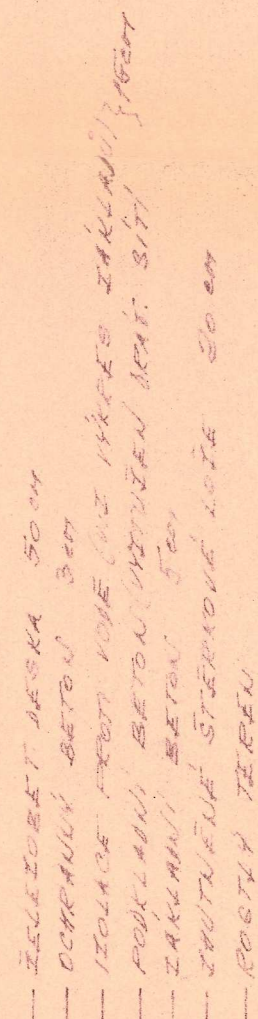 ŽELEZOBET. DESKA 50 cm
OCHRANNÝ BETON 3 cm
IZOLACE PROTI VODĚ (VIZ VÝKRES ZÁKLADŮ)
PODKLADNÍ BETON VYZTUŽEN DRÁT. SÍTÍ } 15 cm
ZÁKLADNÍ BETON 5 cm
ZHUTNĚNÉ ŠTĚRKOVÉ LOŽE 20 cm
ROSTLÝ TERÉN